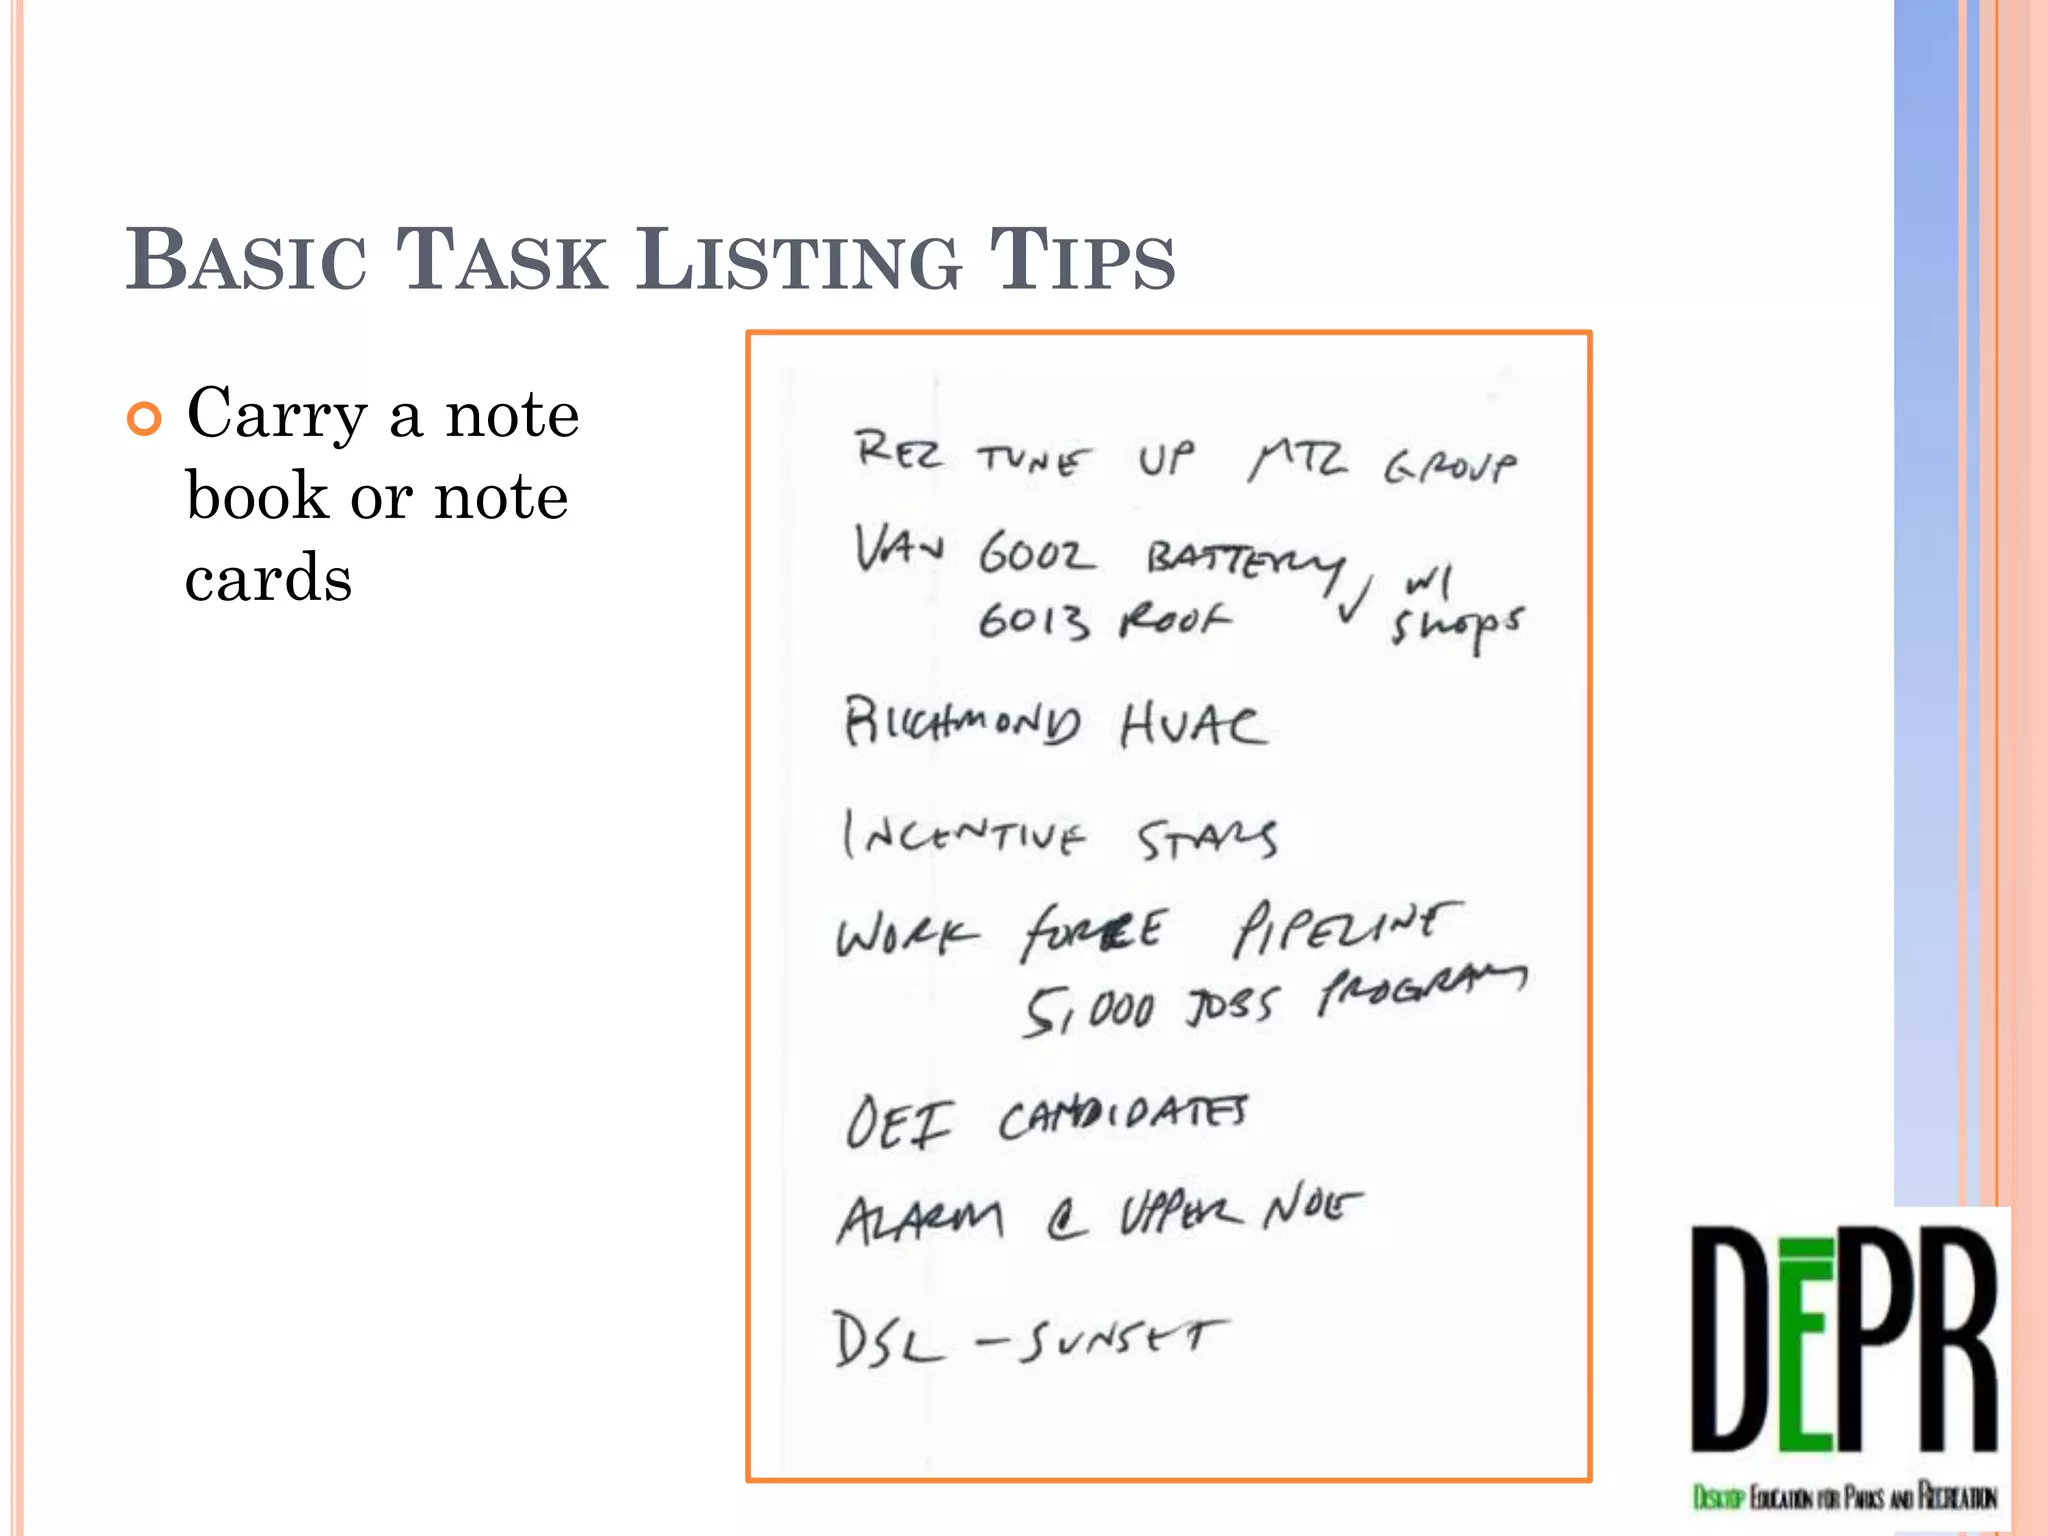 BASIC TASK LISTING TIPS
Carry a note
book or note
cards
REZ TUNE UP MTZ GROUP
VAN 6002 BATTERY ✓ w/
6013 ROOF shops
RICHMOND HVAC
INCENTIVE STARS
WORK FORCE PIPELINE
5,000 JOBS PROGRAM
OEI CANDIDATES
ALARM @ UPPER NOE
DSL - SUNSET
DEPR
DESKTOP EDUCATION FOR PARKS AND RECREATION